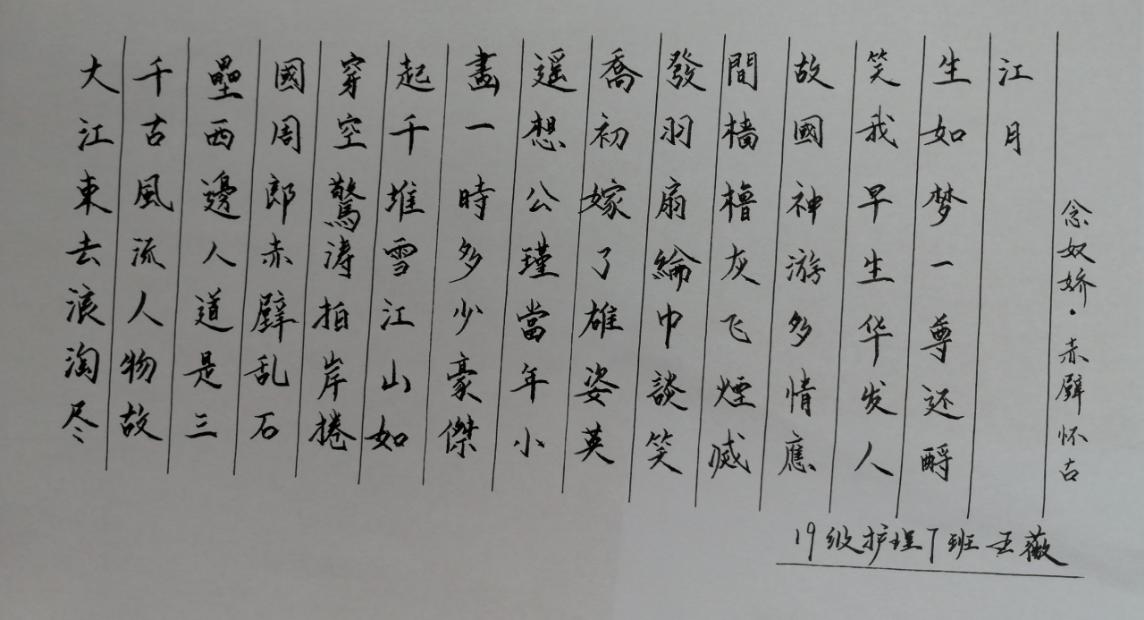 念奴娇·赤壁怀古
大江東去浪淘尽
千古風流人物故
壘西邊人道是三
國周郎赤壁乱石
穿空驚涛拍岸捲
起千堆雪江山如
畫一時多少豪傑
遥想公瑾當年小
喬初嫁了雄姿英
發羽扇綸巾談笑
間檣櫓灰飞煙滅
故國神游多情應
笑我早生华发人
生如梦一尊还酹
江月
19级护理7班 王薇